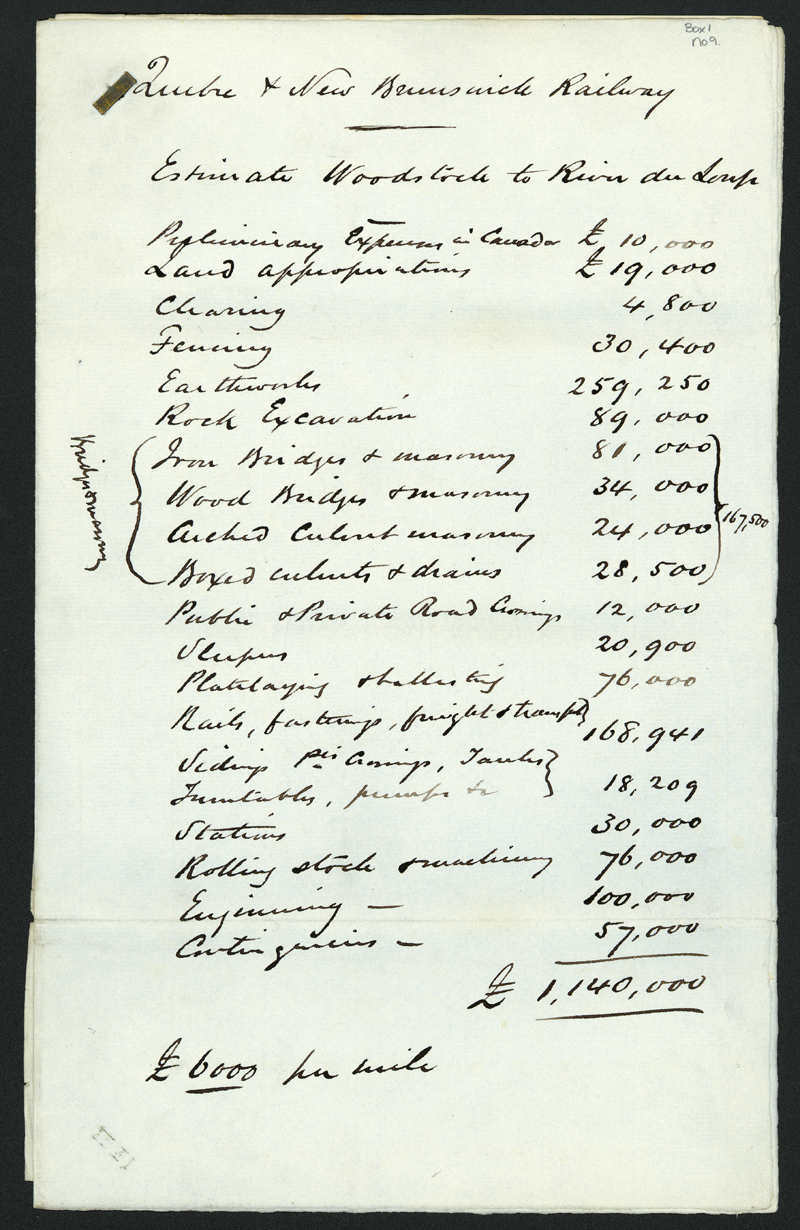 Box 1
no 9.
Quebec & New Brunswick Railway
Estimate Woodstock to River du Loup
Preliminary Expenses in Canada £ 10,000
Land appropriations £ 19,000
Clearing 4,800
Fencing 30,400
Earthworks 259,250
Rock Excavation 89,000
Bridges & masonry
Iron Bridges & masonry 81,000
Wood Bridges & masonry 34,000
Arched Culvert masonry 24,000
167,500
Boxed culverts & drains 28,500
Public & Private Road Crossings 12,000
Sleepers 20,900
Platelaying & ballasting 76,000
Rails, fastenings, freight & transpt
168,941
Sidings Crossings, Tanks
Turntables, pumps &c 18,209
Stations 30,000
Rolling stock & machinery 76,000
Engineering — 100,000
Contingencies — 57,000
£ 1,140,000
£ 6000 per mile